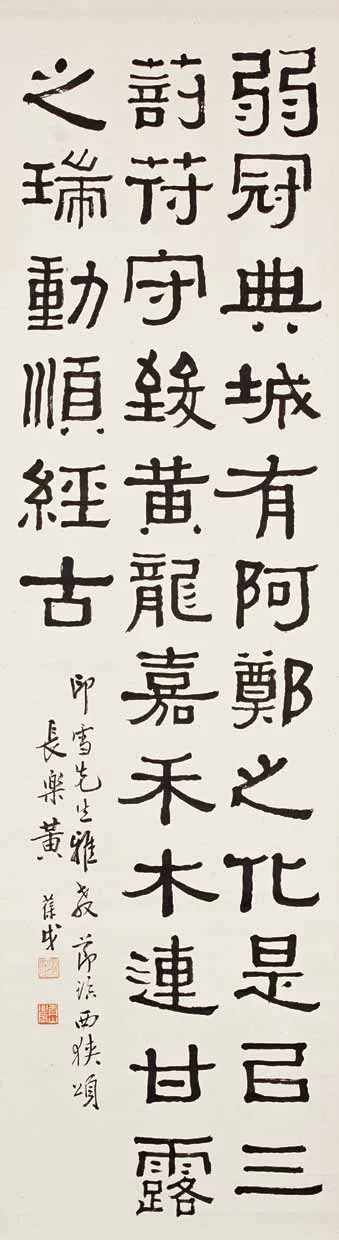 弱冠典城有阿鄭之化是已三
莂苻守致黃龍嘉禾木連甘露
之瑞動順經古
印雪先生雅教 節臨西狹頌
長樂黃葆戉